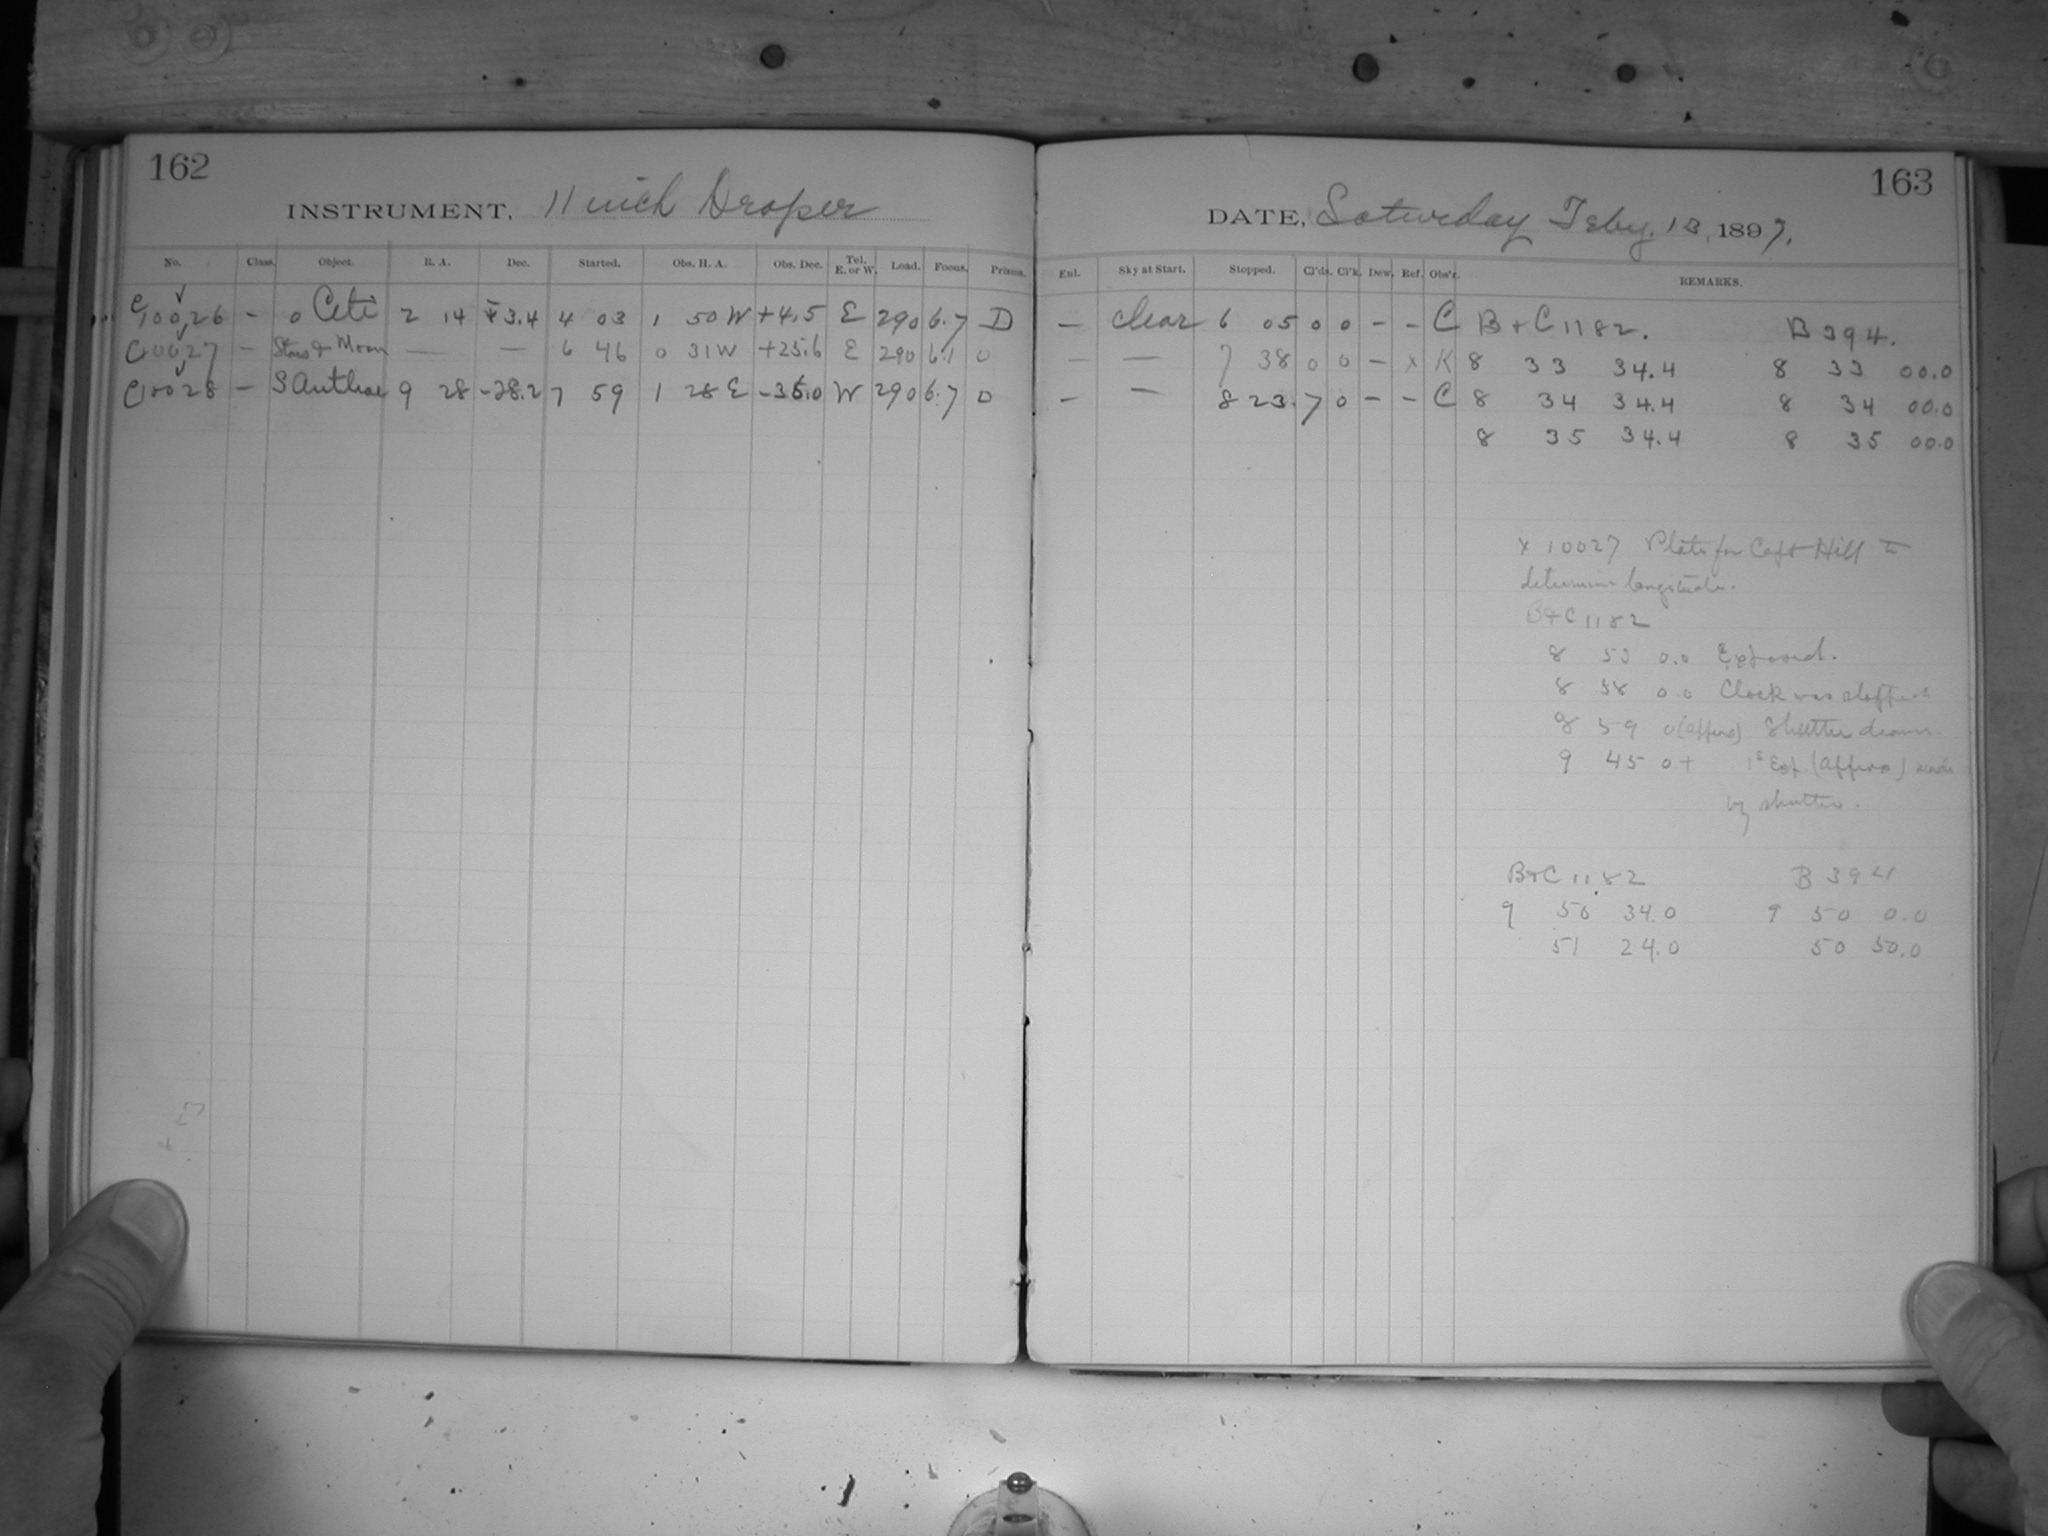 162
INSTRUMENT, 11 inch Draper
No. Class. Object. R. A. Dec. Started. Obs. H. A. Obs. Dec. Tel. E. or W. Load. Focus. Prisms.
C 10026 – o Ceti 2 14 3.4 4 03 1 50 W +4.5 E 290 6.7 D
C 10027 – Stars & Moon — — 6 46 0 31 W +25.6 E 290 6.1 0
C 10028 – S Antliae 9 28 -28.2 7 59 1 28 E -36.0 W 290 6.7 0
163
DATE, Saturday Feby. 13, 1897.
Enl. Sky at Start. Stopped. Cl'ds. Cl'k. Dew. Ref. Obs'r. REMARKS.
– clear 6 05 0 0 – – C B & C 1182. B 394.
– — 7 38 0 0 – x K 8 33 34.4 8 33 00.0
– — 8 23. 7 0 – – C 8 34 34.4 8 34 00.0
8 35 34.4 8 35 00.0
x 10027 Plate for Capt Hill to
determine longitude.
B & C 1182
8 53 0.0 Exposed.
8 58 0.0 Clock was stopped
8 59 0 (approx) Shutter drawn
9 45 0 + 1s Exp (approx) made
by shutter.
B & C 1182 B 394
9 50 34.0 9 50 0.0
51 24.0 50 50.0